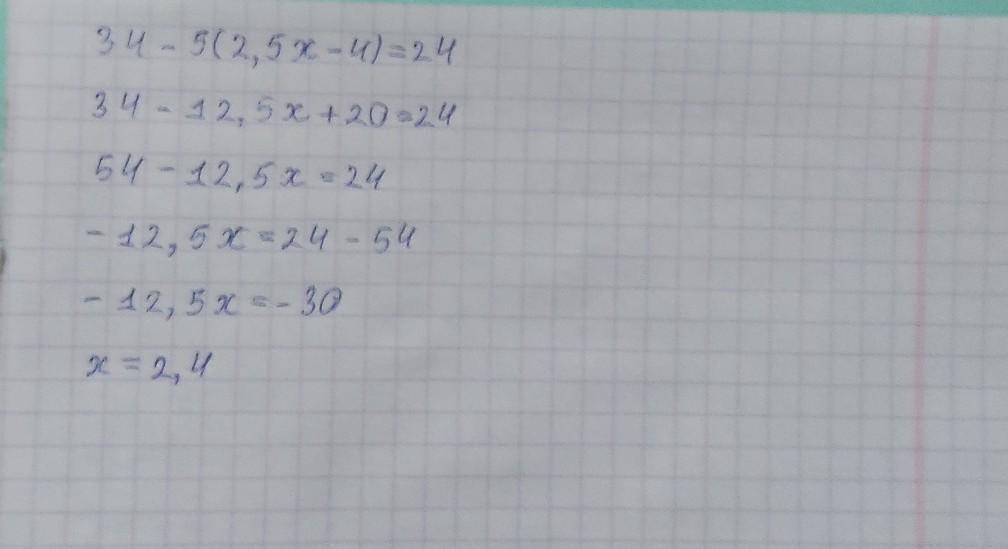 34 - 5(2,5x - 4) = 24
34 - 12,5x + 20 = 24
54 - 12,5x = 24
- 12,5x = 24 - 54
- 12,5x = - 30
x = 2,4